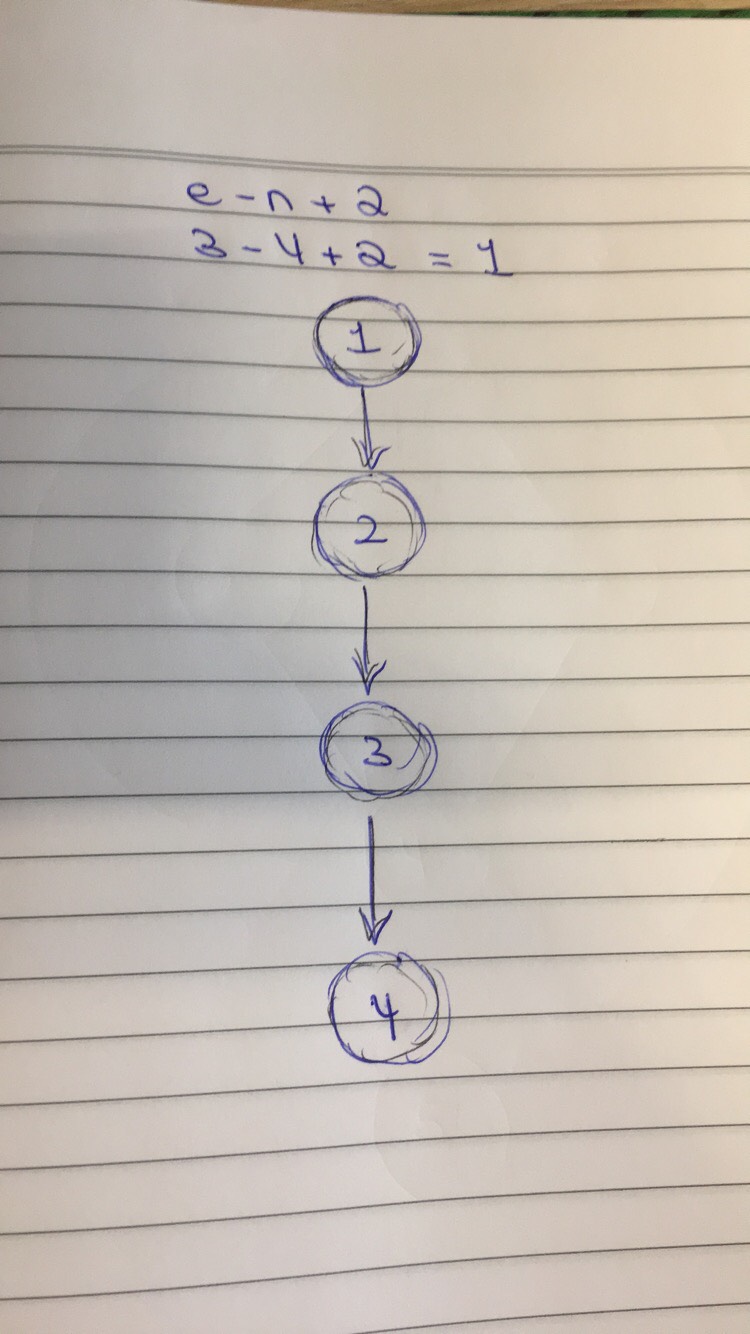 e - n + 2
3 - 4 + 2 = 1
1
2
3
4